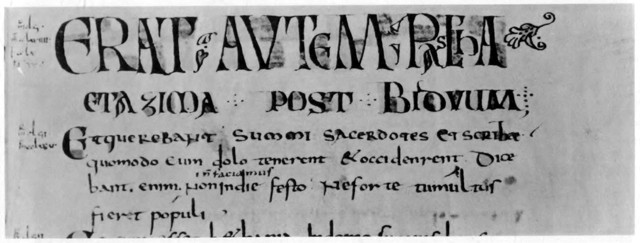 ERAT AVTEM PASChA
ET AZIMA POST BIDVUM;
Et querebant summi sacerdotes et scribe
quomodo eum dolo tenerent & occiderent Dice
bant. enim. Non in die festo Ne forte tumultus
fieret populi